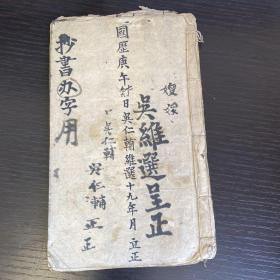 嫂嫂
吳維選呈正
國歷庚午年 日吳仁輔維選十九年 月 立正
吳仁輔
抄書办字用
吳仁輔 正正